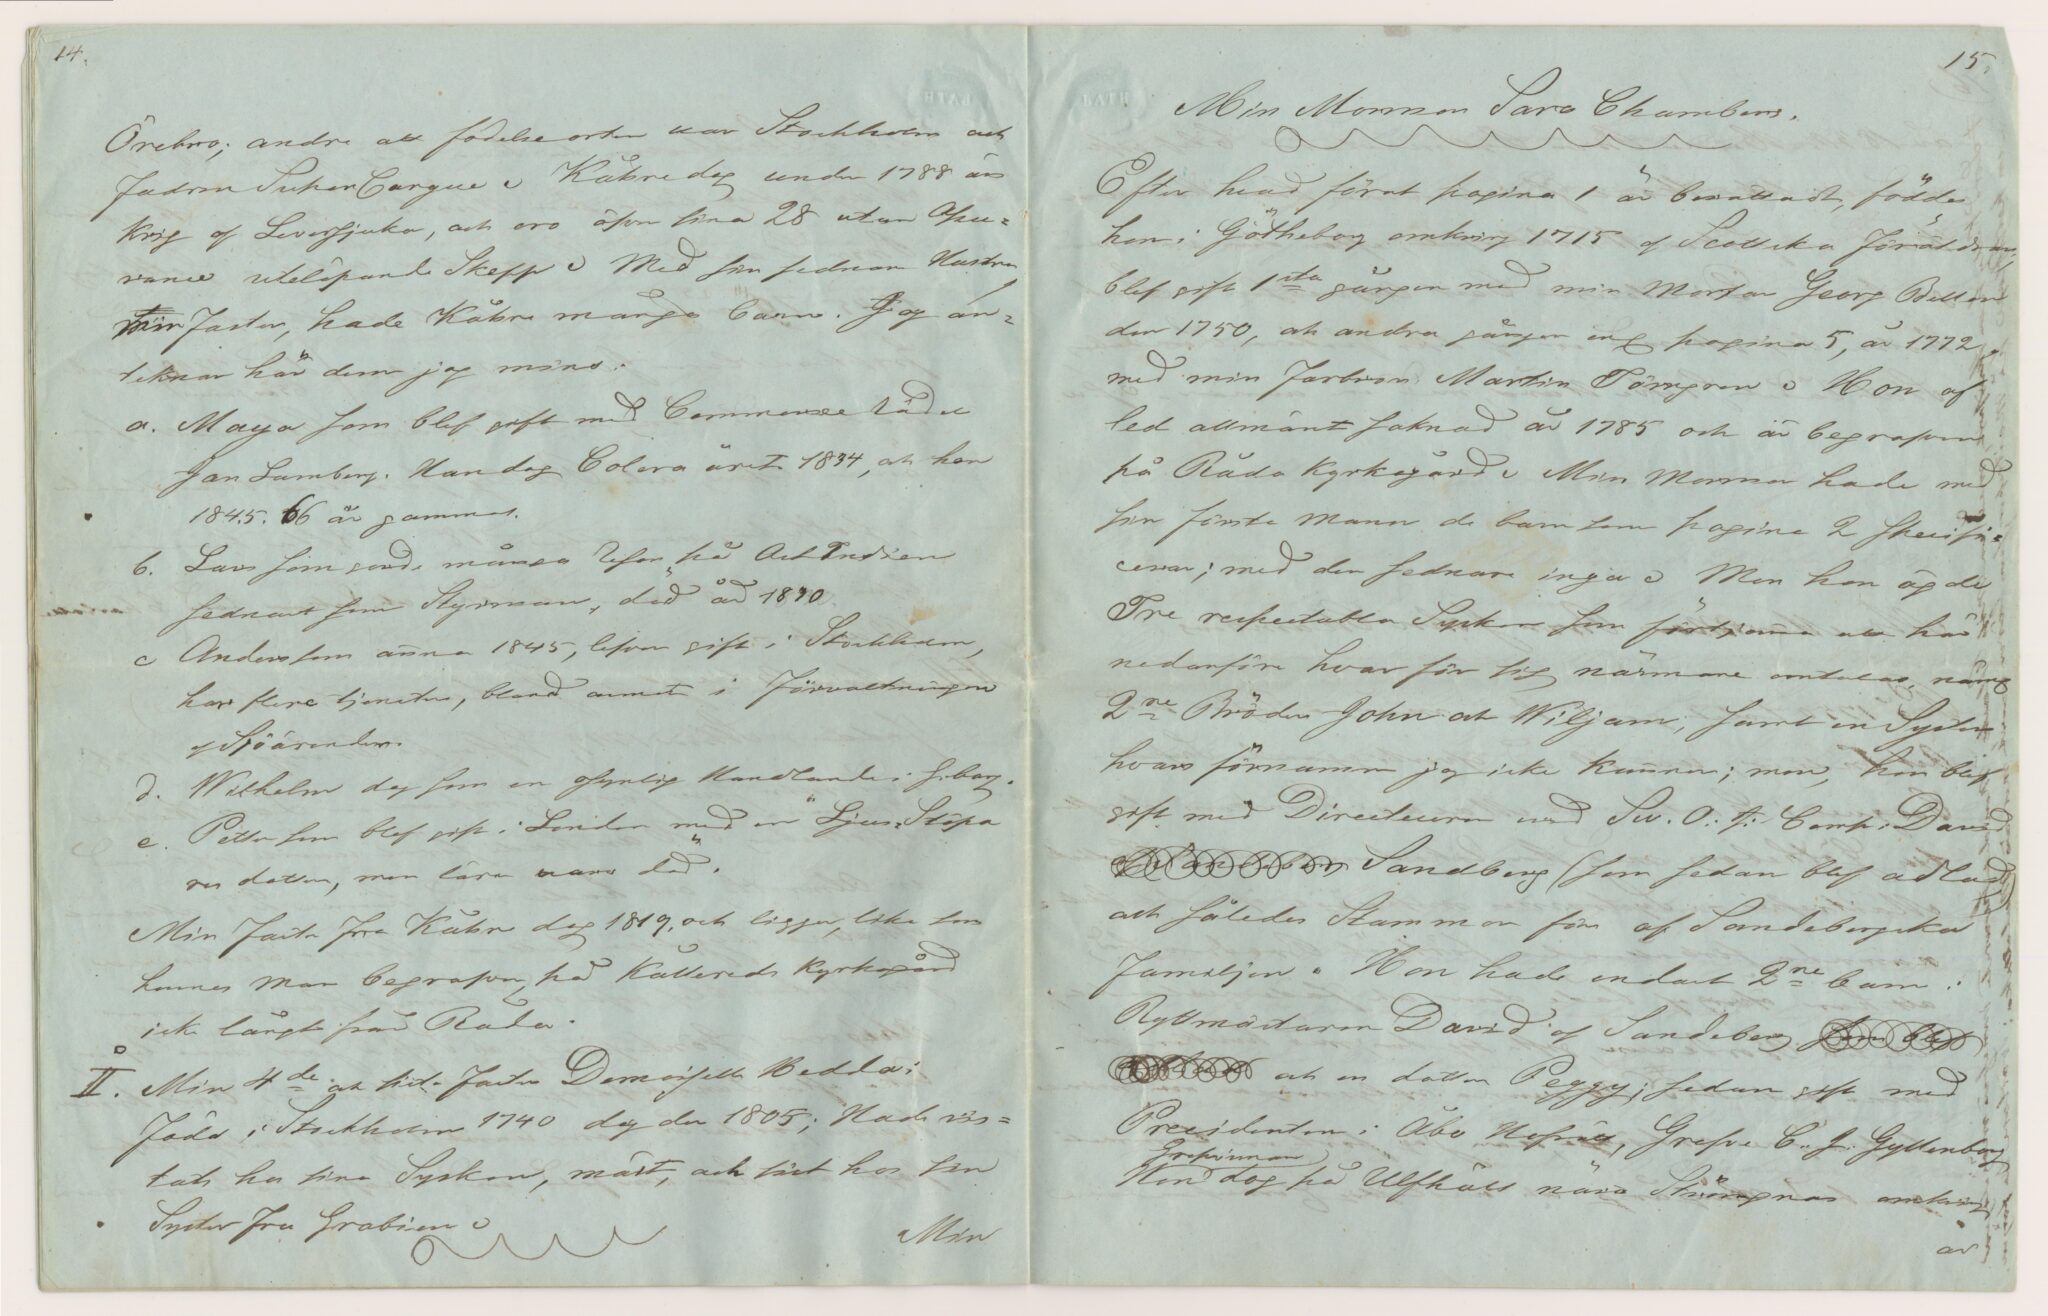 14.
Örebro; andre att födelseorten var Stockholm och
fadren SuperCargue. Kåhre dog under 1788 års
krig af Lefversjuka, och av sina 28 utan Assu=
rance utelöpande Skepp. Med sin sednare Hustru,
min Faster, hade Kåhre många barn. Jag an=
teknar här dem jag mins.
a. Maya som blef gift med Commerce Rådet
Jan Lamberg. Han dog Colera året 1834, och hon
1845. 66 år gammal.
b. Lars som gjorde många Resor på OstIndien
sednast som Styrman, död år 1830.
c Anders som ännu 1845, lefver gift i Stockholm,
har flere tjenster, bland annat i Förvaltningen
af Sjöärenden.
d. Wilhelm dog som en ansenlig Handlande i Gborg.
e. Petter som blef gift i London med en "Ljus=Stöpa
re dotter, men lärer vara död".
Min Faster Fru Kåhre dog 1819, och ligger, lika som
hennes Man begrafven, på Kållereds Kyrkogård
icke långt från Råda.
II. Min 4de och sista Faster Demoiselle Hedda;
Född i Stockholm 1740 dog der 1805; Hade vis=
tats hos sina Syskon, mäst, och sist hos sin
Syster Fru Grabien.
Min
15.
Min Mormor Sara Chambers.
Efter hvad förut pagina 1 är berättadt, föddes
hon i Götheborg omkring 1715 af Scottska Föräldrar,
blef gift 1sta gången med min Morfar Georg Bellen
den 1750, och andra gången enl. pagina 5, år 1772
med min Farbror Martin Törngren. Hon af
led allmänt saknad år 1785 och är begrafven
på Råda Kyrkogård. Min Mormor hade med
sin förste Man de barn som pagina 2 specifi=
cerar; med den sednare inga. Men hon ägde
Tre respectabla Syskon som förtjena att här
nedanföre hvar för sig närmare omtalas, näml
2ne Bröder John och Wiljam, samt en Syster
hvars förnamn jag icke känner; men, hon blef
gift med Directeuren vid Sv. O. I. Comp: David
Sandberg (som sedan blef adlad)
och således Stamfar för af Sandebergska
Familjen. Hon hade endast 2ne barn:
Ryttmästaren David af Sandeberg
och en dotter Peggy; sedan gift med
Presidenten i Åbo Hofrätt, Grefve C. J. Gyllenborg
Grefvinnan
Hon dog på Ulfhäll nära Strängnäs omkring
år